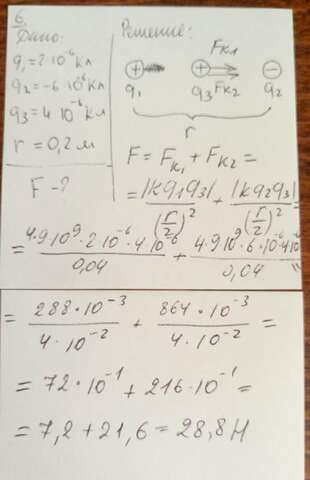 6.
Дано:
q₁=2 10⁻⁶ Кл
q₂=-6 10⁻⁶ Кл
q₃=4 10⁻⁶ Кл
r = 0,2 м
F - ?
Решение:
Fк₁
+ + −
q₁ q₃ Fк₂ q₂
r
F = Fк₁ + Fк₂ =
= |kq₁q₃| / (r/2)² + |kq₂q₃| / (r/2)² =
= 4·9 10⁹·2 10⁻⁶·4·10⁻⁶ / 0,04 + 4·9 10⁹·6·10⁻⁶·4 10⁻⁶ / 0,04 =
= 288·10⁻³ / 4·10⁻² + 864·10⁻³ / 4·10⁻² =
= 72·10⁻¹ + 216·10⁻¹ =
= 7,2 + 21,6 = 28,8 Н